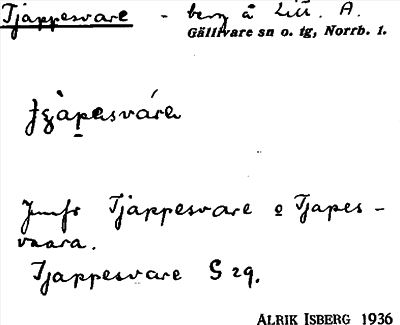 Tjåppesvare - berg å Lill. A.
Gällivare sn o. tg, Norrb. l.
Jmfr Tjåppesvare o Tjapes-
vaara.
Tjappesvare S 29.
ALRIK ISBERG 1936